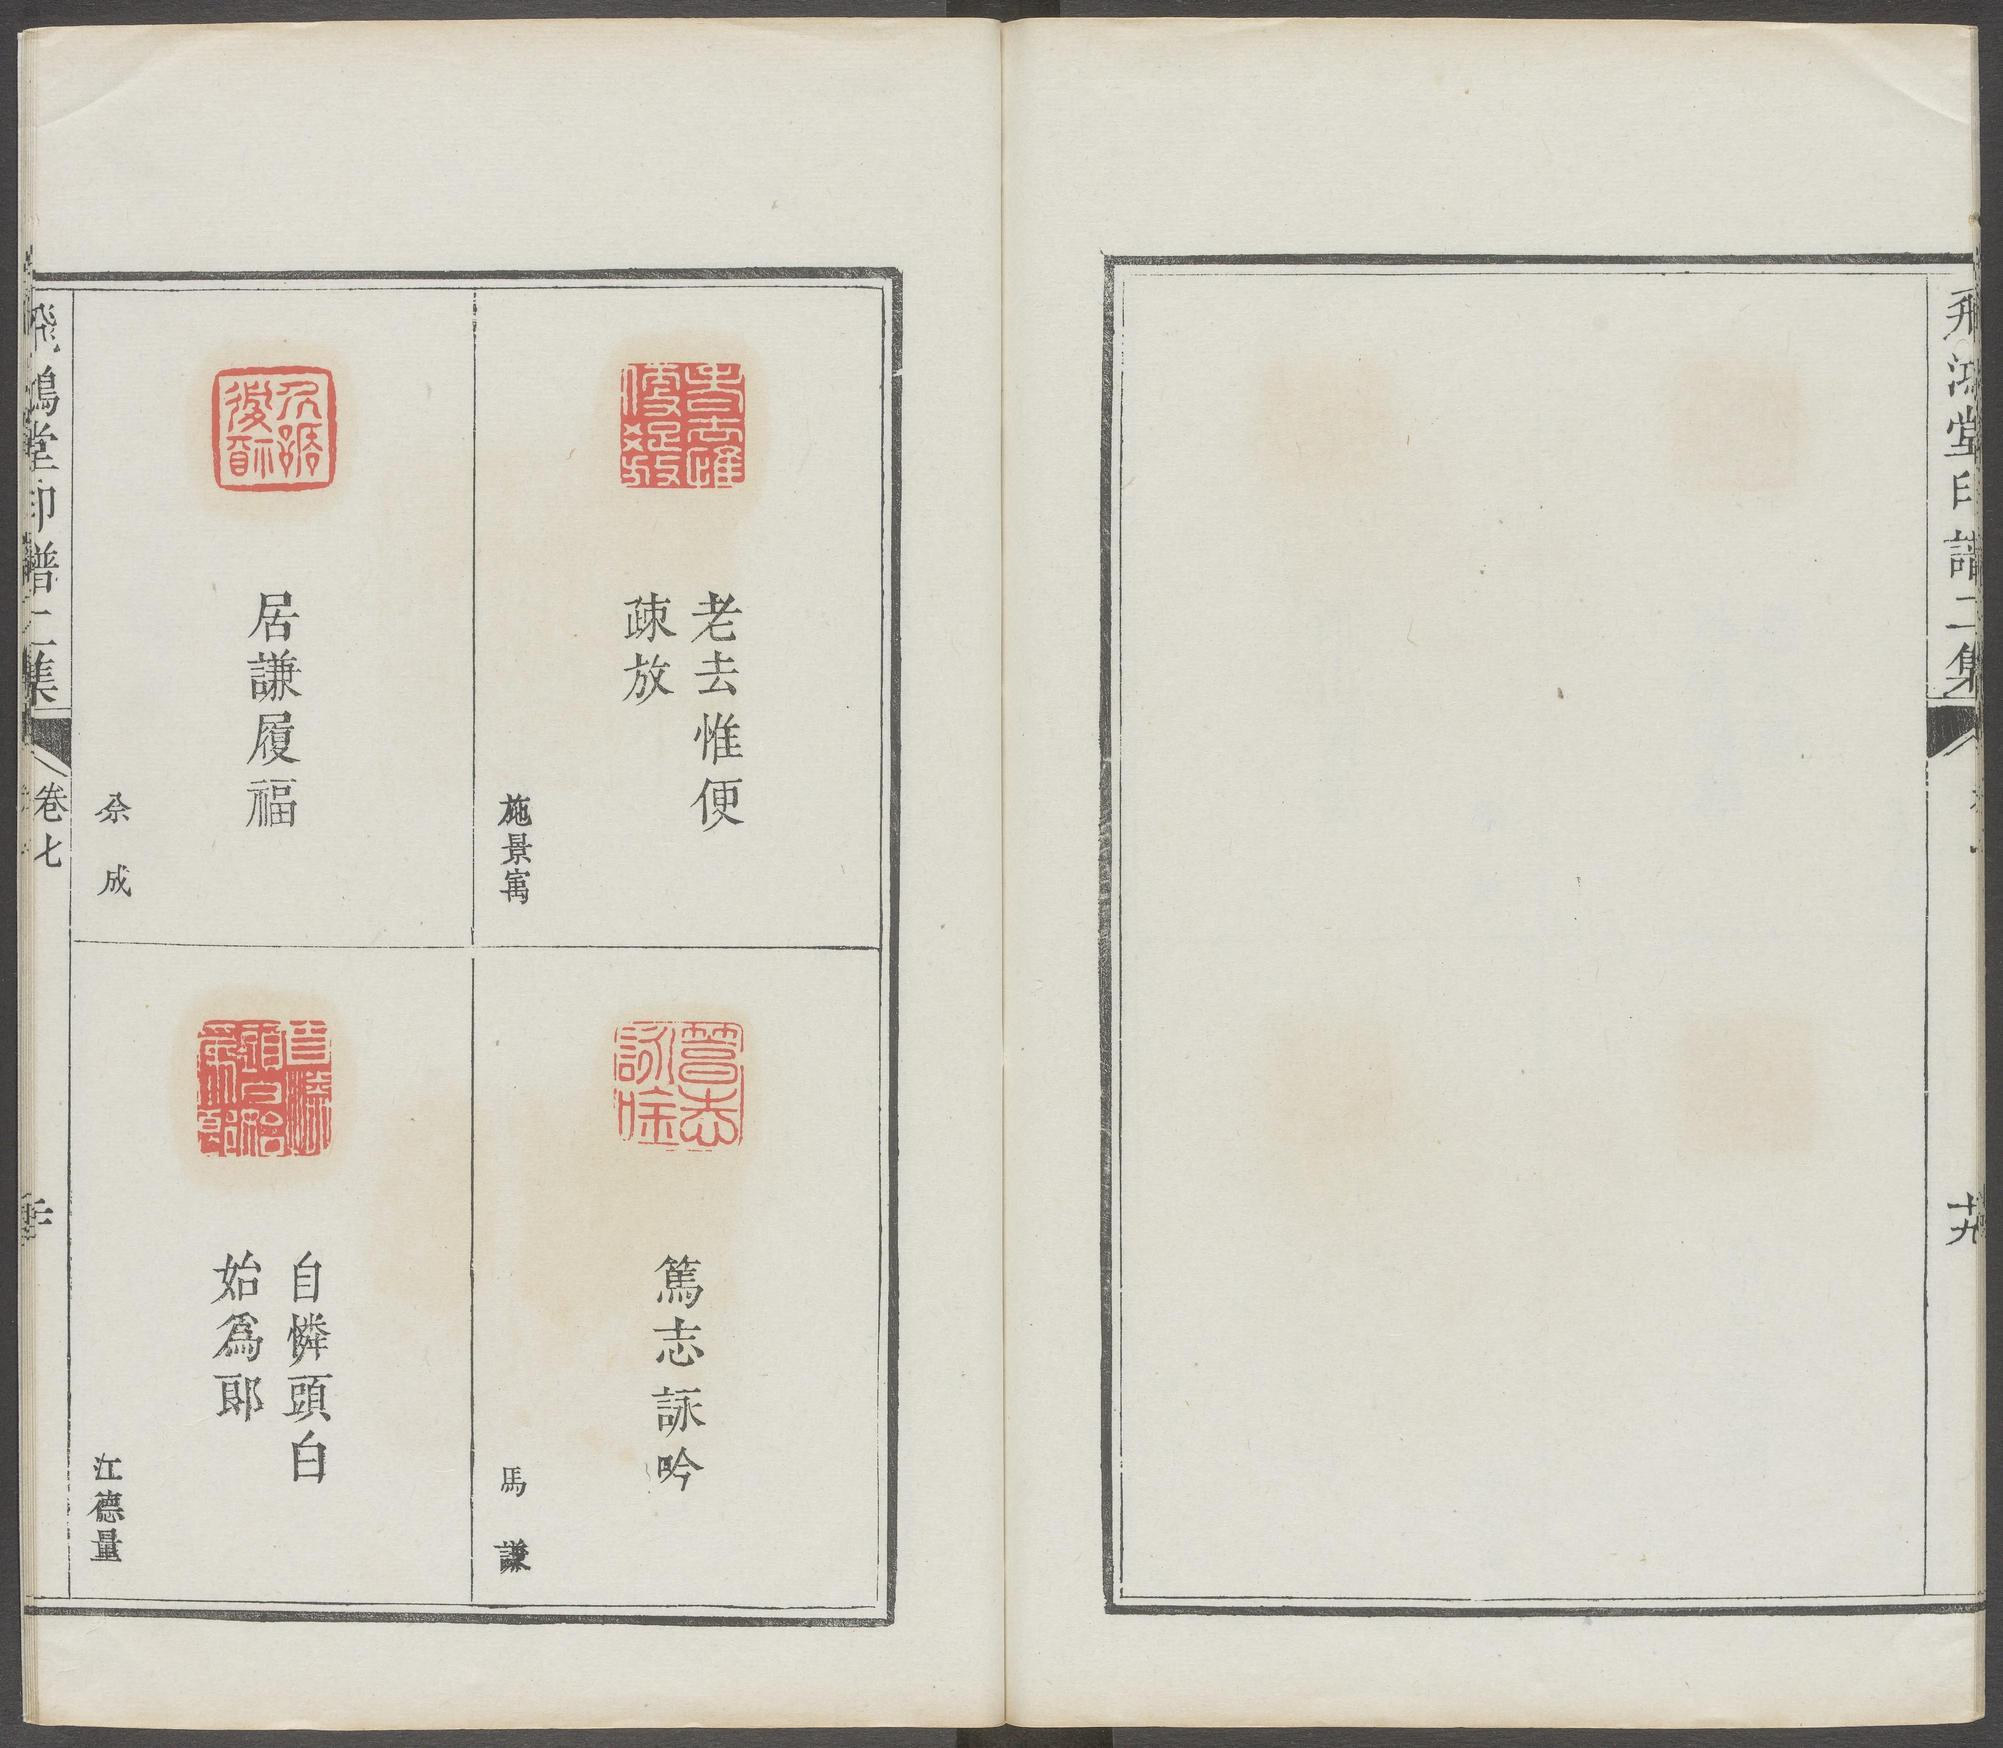 飛鴻堂印譜二集
十九
老去惟便
疎放
施景寓
篤志詠吟
馬謙
居謙履福
余成
自憐頭白
始爲郎
江德量
飛鴻堂印譜二集
卷七